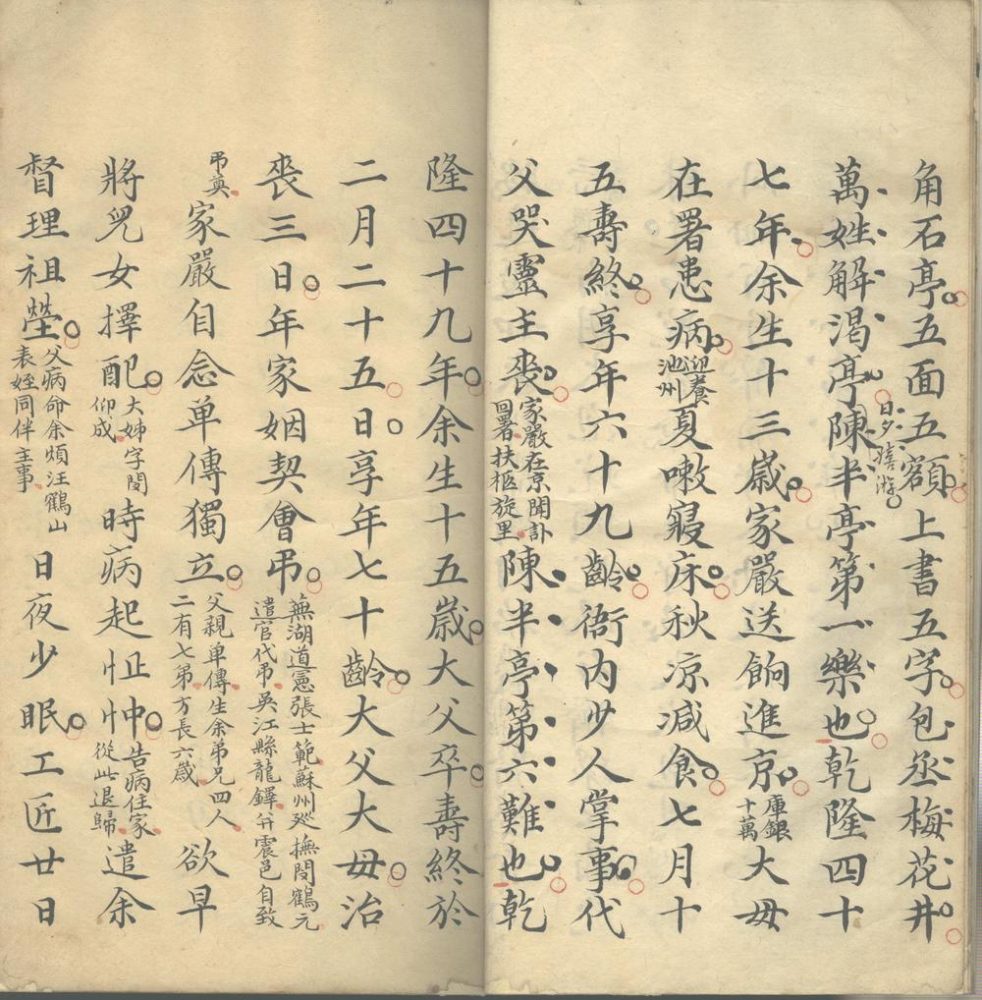 角石亭五面五額上書五字包丞梅花井
萬姓解渴亭日夕嬉游陳半亭第一樂也乾隆四十
七年余生十三歲家嚴送餉進京庫銀十萬大毋
在署患病迎養池州夏嗽寢床秋凉減食七月十
五壽終享年六十九齡衙内少人掌事代
父哭靈主喪家嚴在京聞訃回署扶柩旋里陳半亭第六難也乾
隆四十九年余生十五歲大父卒壽終於
二月二十五日享年七十齡大父大毋治
喪三日年家姻契會弔蕪湖道憲張士範蘇州廵撫閔鶴元遣官代弔吳江縣龍鐸分震邑自致
弔奠家嚴自念单傳獨立父親单傳生余弟兄四人二有七弟方長六歲欲早
將兒女擇配大姊字閔仰成時病起怔忡告病住家從此退歸遣余
督理祖塋父病命余煩汪鶴山表姪同伴主事日夜少眠工匠廿日